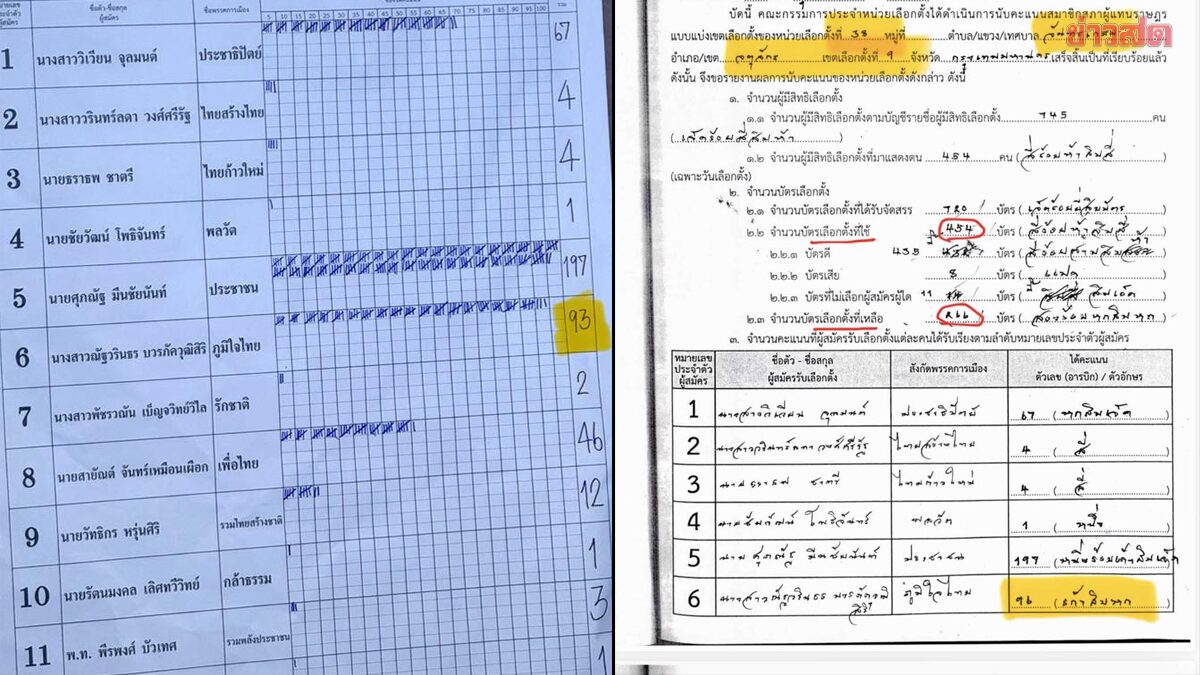 หมายเลข ประจำตัว ผู้สมัคร ชื่อตัว-ชื่อสกุล ผู้สมัคร ชื่อพรรคการเมือง 5 10 15 20 25 30 35 40 45 50 55 60 65 70 75 80 85 90 95 100 รวม
1 นางสาววิเวียน จุลมนต์ ประชาธิปัตย์ 67
2 นางสาววรินทร์ลดา วงศ์ศรีรัฐ ไทยสร้างไทย 4
3 นายธราธพ ชาตรี ไทยก้าวใหม่ 4
4 นายชัยวัฒน์ โพธิจันทร์ พลวัต 1
5 นายศุภณัฐ มีนชัยนันท์ ประชาชน 197
6 นางสาวณัฐวรินธร บวรภัควุฒิสิริ ภูมิใจไทย 93
7 นางสาวพัชรวณัน เบ็ญจวิทย์วิไล รักชาติ 2
8 นายสายัณต์ จันทร์เหมือนเผือก เพื่อไทย 46
9 นายวัทธิกร หรุ่นศิริ รวมไทยสร้างชาติ 12
10 นายรัตนมงคล เลิศทวีวิทย์ กล้าธรรม 1
11 พ.ท. พีรพงศ์ บัวเทศ รวมพลังประชาชน 3
1
ข่าวสด
บัดนี้ คณะกรรมการประจำหน่วยเลือกตั้งได้ดำเนินการนับคะแนนสมาชิกสภาผู้แทนราษฎร
แบบแบ่งเขตเลือกตั้งของหน่วยเลือกตั้งที่ 38 หมู่ที่ ตำบล/แขวง/เทศบาล
อำเภอ/เขต จตุจักร เขตเลือกตั้งที่ 9 จังหวัด กรุงเทพมหานคร เสร็จสิ้นเป็นที่เรียบร้อยแล้ว
ดังนั้น จึงขอรายงานผลการนับคะแนนของหน่วยเลือกตั้งดังกล่าว ดังนี้
๑. จำนวนผู้มีสิทธิเลือกตั้ง
๑.๑ จำนวนผู้มีสิทธิเลือกตั้งตามบัญชีรายชื่อผู้มีสิทธิเลือกตั้ง 745 คน
(เจ็ดร้อยสี่สิบห้า)
๑.๒ จำนวนผู้มีสิทธิเลือกตั้งที่มาแสดงตน 454 คน (สี่ร้อยห้าสิบสี่)
(เฉพาะวันเลือกตั้ง)
๒. จำนวนบัตรเลือกตั้ง
๒.๑ จำนวนบัตรเลือกตั้งที่ได้รับจัดสรร 720 บัตร (เจ็ดร้อยยี่สิบบัตร)
๒.๒ จำนวนบัตรเลือกตั้งที่ใช้ 454 บัตร (สี่ร้อยห้าสิบสี่)
๒.๒.๑ บัตรดี 435 บัตร (สี่ร้อยสามสิบห้า)
๒.๒.๒ บัตรเสีย 8 บัตร (แปด)
๒.๒.๓ บัตรที่ไม่เลือกผู้สมัครผู้ใด 11 บัตร (สิบเอ็ด)
๒.๓ จำนวนบัตรเลือกตั้งที่เหลือ 266 บัตร (สองร้อยหกสิบหก)
๓. จำนวนคะแนนที่ผู้สมัครรับเลือกตั้งแต่ละคนได้รับเรียงตามลำดับหมายเลขประจำตัวผู้สมัคร
หมายเลข ประจำตัว ผู้สมัคร ชื่อตัว - ชื่อสกุล ผู้สมัครรับเลือกตั้ง สังกัดพรรคการเมือง ได้คะแนน ตัวเลข (อารบิก) / ตัวอักษร
1 นางสาววิเวียน จุลมนต์ ประชาธิปัตย์ 67 (หกสิบเจ็ด)
2 นางสาววรินทร์ลดา วงศ์ศรีรัฐ ไทยสร้างไทย 4 (สี่)
3 นายธราธพ ชาตรี ไทยก้าวใหม่ 4 (สี่)
4 นายชัยวัฒน์ โพธิจันทร์ พลวัต 1 (หนึ่ง)
5 นายศุภณัฐ มีนชัยนันท์ ประชาชน 197 (หนึ่งร้อยเก้าสิบเจ็ด)
6 นางสาวณัฐวรินธร บวรภัควุฒิสิริ ภูมิใจไทย 96 (เก้าสิบหก)